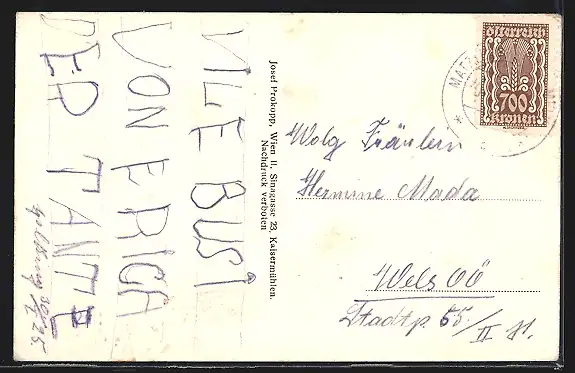 VILE BUSI
VON ERICA
DER TANTE
Josef Prokopp, Wien II, Sinagasse 23, Kaisermühlen.
Nachdruck verboten
Österreich
700
Kronen
Wolg Fräulein
Hermine Mada
Wels OÖ
Stadtp. 55/II St.